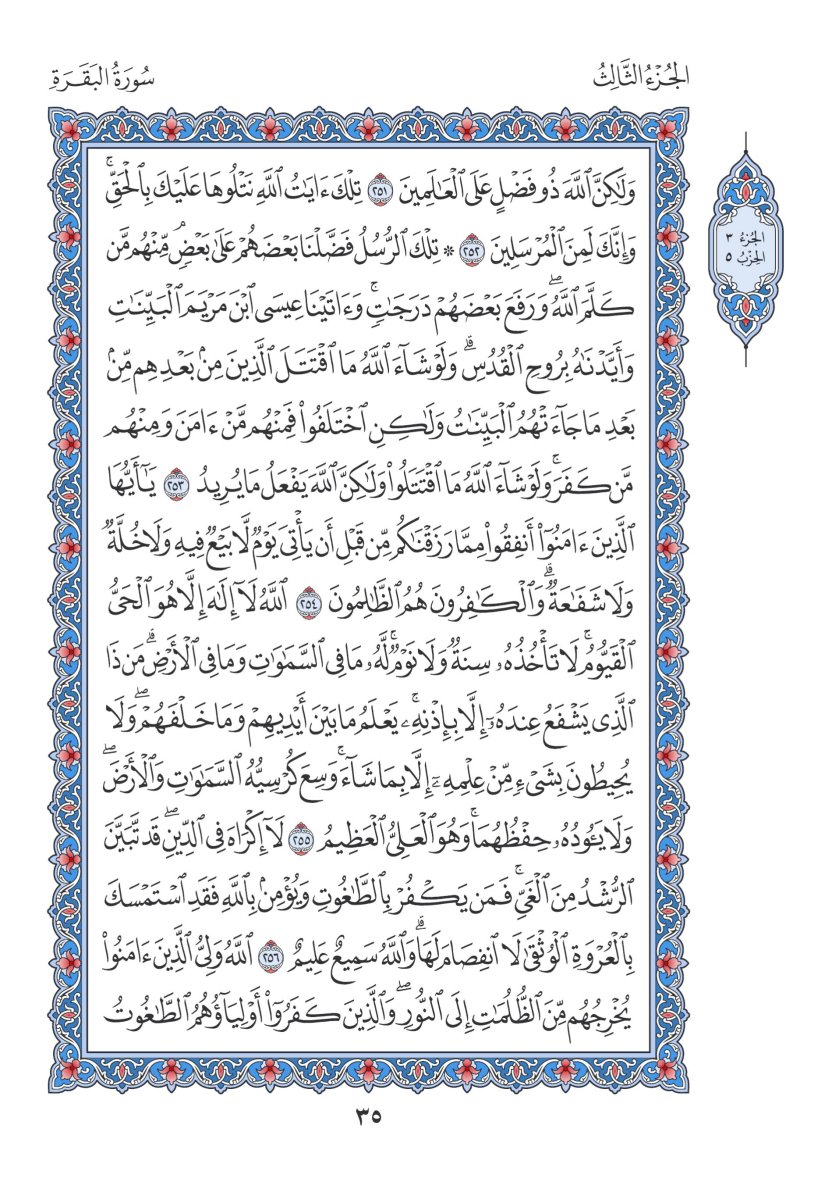 الجُزْءُ الثَّالِثُ
سُورَةُ البَقَرَةِ
وَلَٰكِنَّ ٱللَّهَ ذُو فَضۡلٍ عَلَى ٱلۡعَٰلَمِينَ ٢٥١ تِلۡكَ ءَايَٰتُ ٱللَّهِ نَتۡلُوهَا عَلَيۡكَ بِٱلۡحَقِّۚ
وَإِنَّكَ لَمِنَ ٱلۡمُرۡسَلِينَ ٢٥٢ * تِلۡكَ ٱلرُّسُلُ فَضَّلۡنَا بَعۡضَهُمۡ عَلَىٰ بَعۡضٖۘ مِّنۡهُم مَّن
كَلَّمَ ٱللَّهُۖ وَرَفَعَ بَعۡضَهُمۡ دَرَجَٰتٖۚ وَءَاتَيۡنَا عِيسَى ٱبۡنَ مَرۡيَمَ ٱلۡبَيِّنَٰتِ
وَأَيَّدۡنَٰهُ بِرُوحِ ٱلۡقُدُسِۗ وَلَوۡ شَآءَ ٱللَّهُ مَا ٱقۡتَتَلَ ٱلَّذِينَ مِنۢ بَعۡدِهِم مِّنۢ
بَعۡدِ مَا جَآءَتۡهُمُ ٱلۡبَيِّنَٰتُ وَلَٰكِنِ ٱخۡتَلَفُواْ فَمِنۡهُم مَّنۡ ءَامَنَ وَمِنۡهُم
مَّن كَفَرَۚ وَلَوۡ شَآءَ ٱللَّهُ مَا ٱقۡتَتَلُواْ وَلَٰكِنَّ ٱللَّهَ يَفۡعَلُ مَا يُرِيدُ ٢٥٣ يَٰٓأَيُّهَا
ٱلَّذِينَ ءَامَنُوٓاْ أَنفِقُواْ مِمَّا رَزَقۡنَٰكُم مِّن قَبۡلِ أَن يَأۡتِيَ يَوۡمٞ لَّا بَيۡعٞ فِيهِ وَلَا خُلَّةٞ
وَلَا شَفَٰعَةٞۗ وَٱلۡكَٰفِرُونَ هُمُ ٱلظَّٰلِمُونَ ٢٥٤ ٱللَّهُ لَآ إِلَٰهَ إِلَّا هُوَ ٱلۡحَيُّ
ٱلۡقَيُّومُۚ لَا تَأۡخُذُهُۥ سِنَةٞ وَلَا نَوۡمٞۚ لَّهُۥ مَا فِي ٱلسَّمَٰوَٰتِ وَمَا فِي ٱلۡأَرۡضِۗ مَن ذَا
ٱلَّذِي يَشۡفَعُ عِندَهُۥٓ إِلَّا بِإِذۡنِهِۦۚ يَعۡلَمُ مَا بَيۡنَ أَيۡدِيهِمۡ وَمَا خَلۡفَهُمۡۖ وَلَا
يُحِيطُونَ بِشَيۡءٖ مِّنۡ عِلۡمِهِۦٓ إِلَّا بِمَا شَآءَۚ وَسِعَ كُرۡسِيُّهُ ٱلسَّمَٰوَٰتِ وَٱلۡأَرۡضَۖ
وَلَا يَـُٔودُهُۥ حِفۡظُهُمَاۚ وَهُوَ ٱلۡعَلِيُّ ٱلۡعَظِيمُ ٢٥٥ لَآ إِكۡرَاهَ فِي ٱلدِّينِۖ قَد تَّبَيَّنَ
ٱلرُّشۡدُ مِنَ ٱلۡغَيِّۚ فَمَن يَكۡفُرۡ بِٱلطَّٰغُوتِ وَيُؤۡمِنۢ بِٱللَّهِ فَقَدِ ٱسۡتَمۡسَكَ
بِٱلۡعُرۡوَةِ ٱلۡوُثۡقَىٰ لَا ٱنفِصَامَ لَهَاۗ وَٱللَّهُ سَمِيعٌ عَلِيمٌ ٢٥٦ ٱللَّهُ وَلِيُّ ٱلَّذِينَ ءَامَنُواْ
يُخۡرِجُهُم مِّنَ ٱلظُّلُمَٰتِ إِلَى ٱلنُّورِۖ وَٱلَّذِينَ كَفَرُوٓاْ أَوۡلِيَآؤُهُمُ ٱلطَّٰغُوتُ
الجُزءُ ٣
الحِزْبُ ٥
٣٥